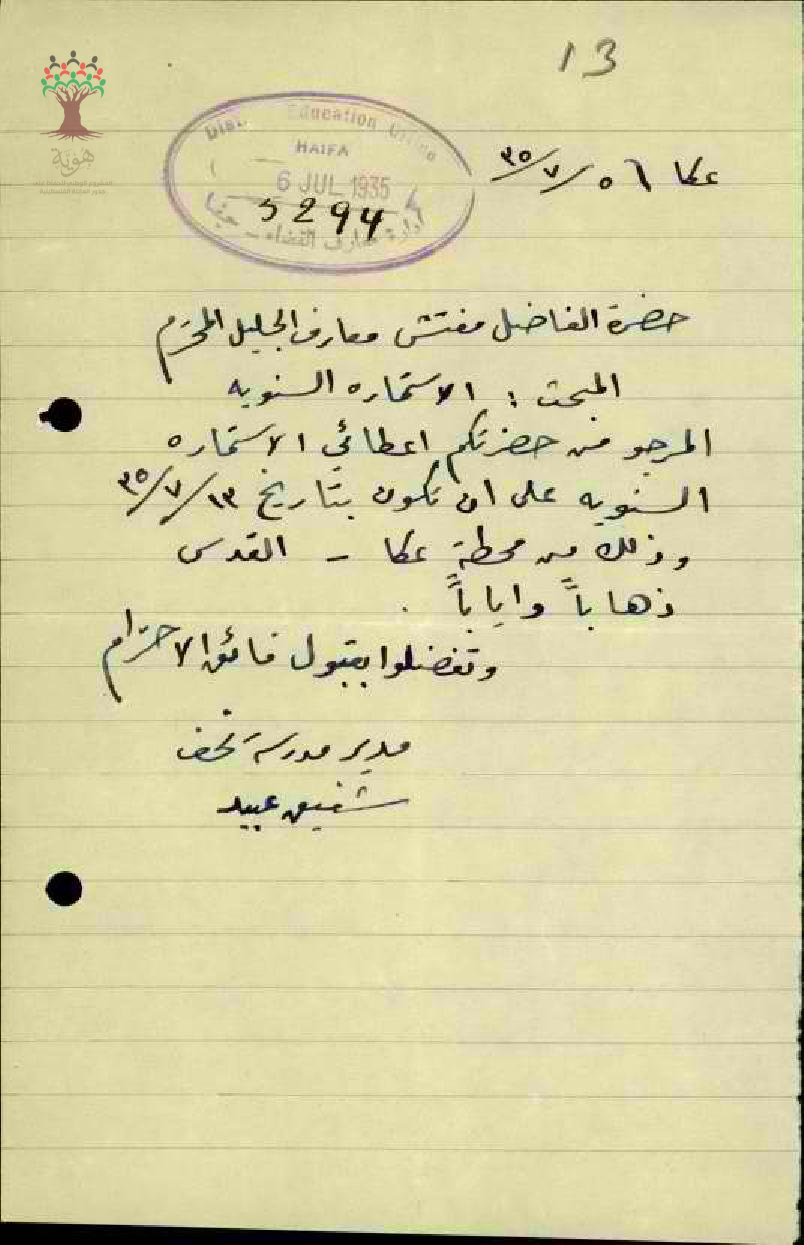 13
هوية
District Education Office
HAIFA
6 JUL 1935
5294
ادارة معارف القضاء - حيفا
عكا ٥/٧/٣٥
حضرة الفاضل مفتش معارف الجليل المحترم
المبحث : الاستماره السنويه
المرجو من حضرتكم اعطائي الاستماره
السنويه على ان تكون بتاريخ ١٣/٧/٣٥
وذلك من محطة عكا - القدس
ذهاباً واياباً .
وتفضلوا بقبول فائق الاحترام
مدير مدرسة نحف
شفيق عبيد